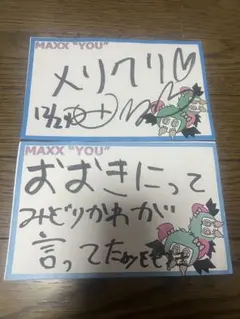 MAXX "YOU"
メリクリ♡
12/24
MAXX "YOU"
おおきにって
みどりかわが
言ってた